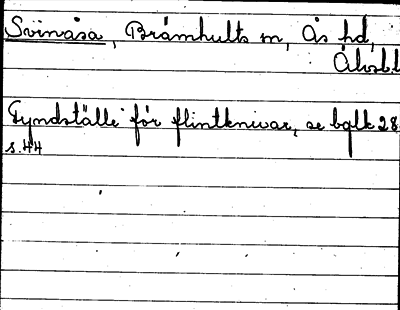 Svinåsa, Brämhults sn, Ås hd,
Älvsb.l
Fyndställe för flintknivar, se bglk 28
s. 44